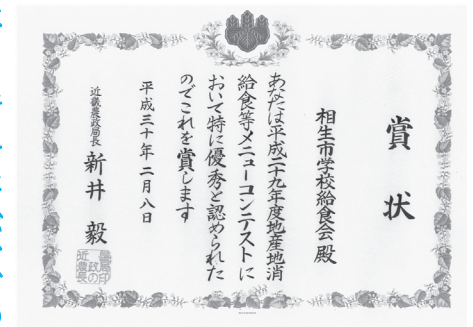 賞状
相生市学校給食会殿
あなたは平成二十九年度地産地消
給食等メニューコンテストに
おいて特に優秀と認められた
のでこれを賞します
平成三十年二月八日
近畿農政局長 新井 毅